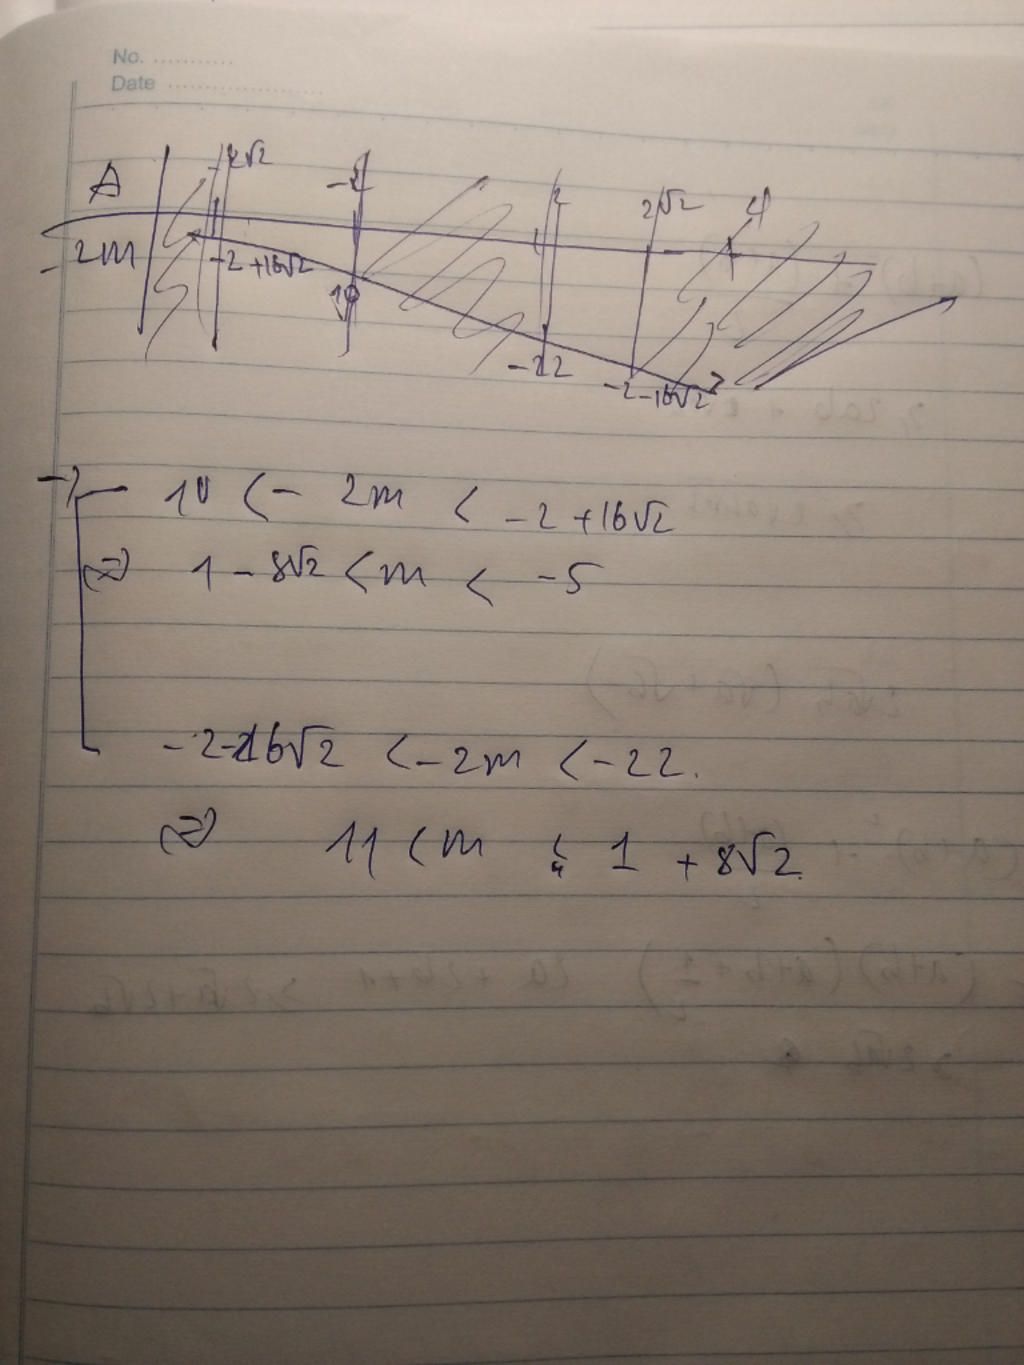 No. ............
Date ......................
-2√2
2√2 4
A
-2m
-2+16√2
10
-22
-2-16√2
10 < -2m < -2+16√2
⇔ 1-8√2 < m < -5
-2-16√2 < -2m < -22.
⇔ 11 < m < 1 + 8√2.